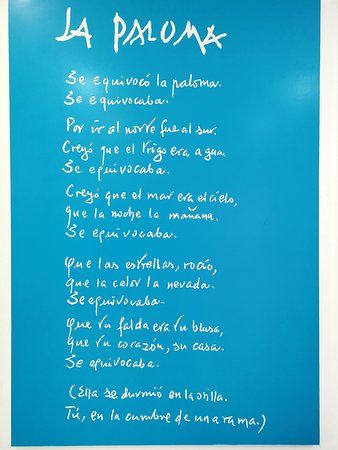 LA PALOMA
Se equivocó la paloma.
Se equivocaba.
Por ir al norte fue al sur.
Creyó que el trigo era agua.
Se equivocaba.
Creyó que el mar era el cielo,
que la noche la mañana.
Se equivocaba.
Que las estrellas, rocío,
que la calor la nevada.
Se equivocaba.
Que tu falda era tu blusa,
que tu corazón, su casa.
Se equivocaba.
(Ella se durmió en la orilla.
Tú, en la cumbre de una rama.)